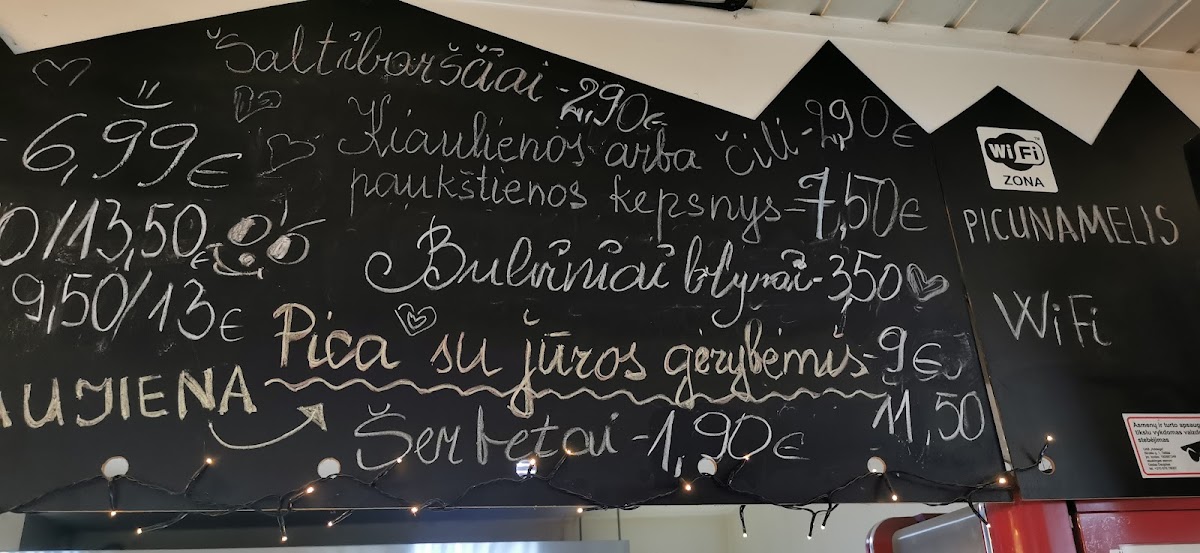 Šaltibarščiai - 2,90€
6,99€
Kiaulienos arba čili - 2,90€
paukštienos kepsnys - 7,50€
0/13,50€
Bulviniai blynai - 3,50
9,50/13€
Pica su jūros gėrybėmis - 9€
11,50
AUJIENA
Šerbetai - 1,90€
WiFi
ZONA
PICUNAMELIS
WiFi
Asmenų ir turto apsaugos
tikslu vykdomas vaizdo
stebėjimas